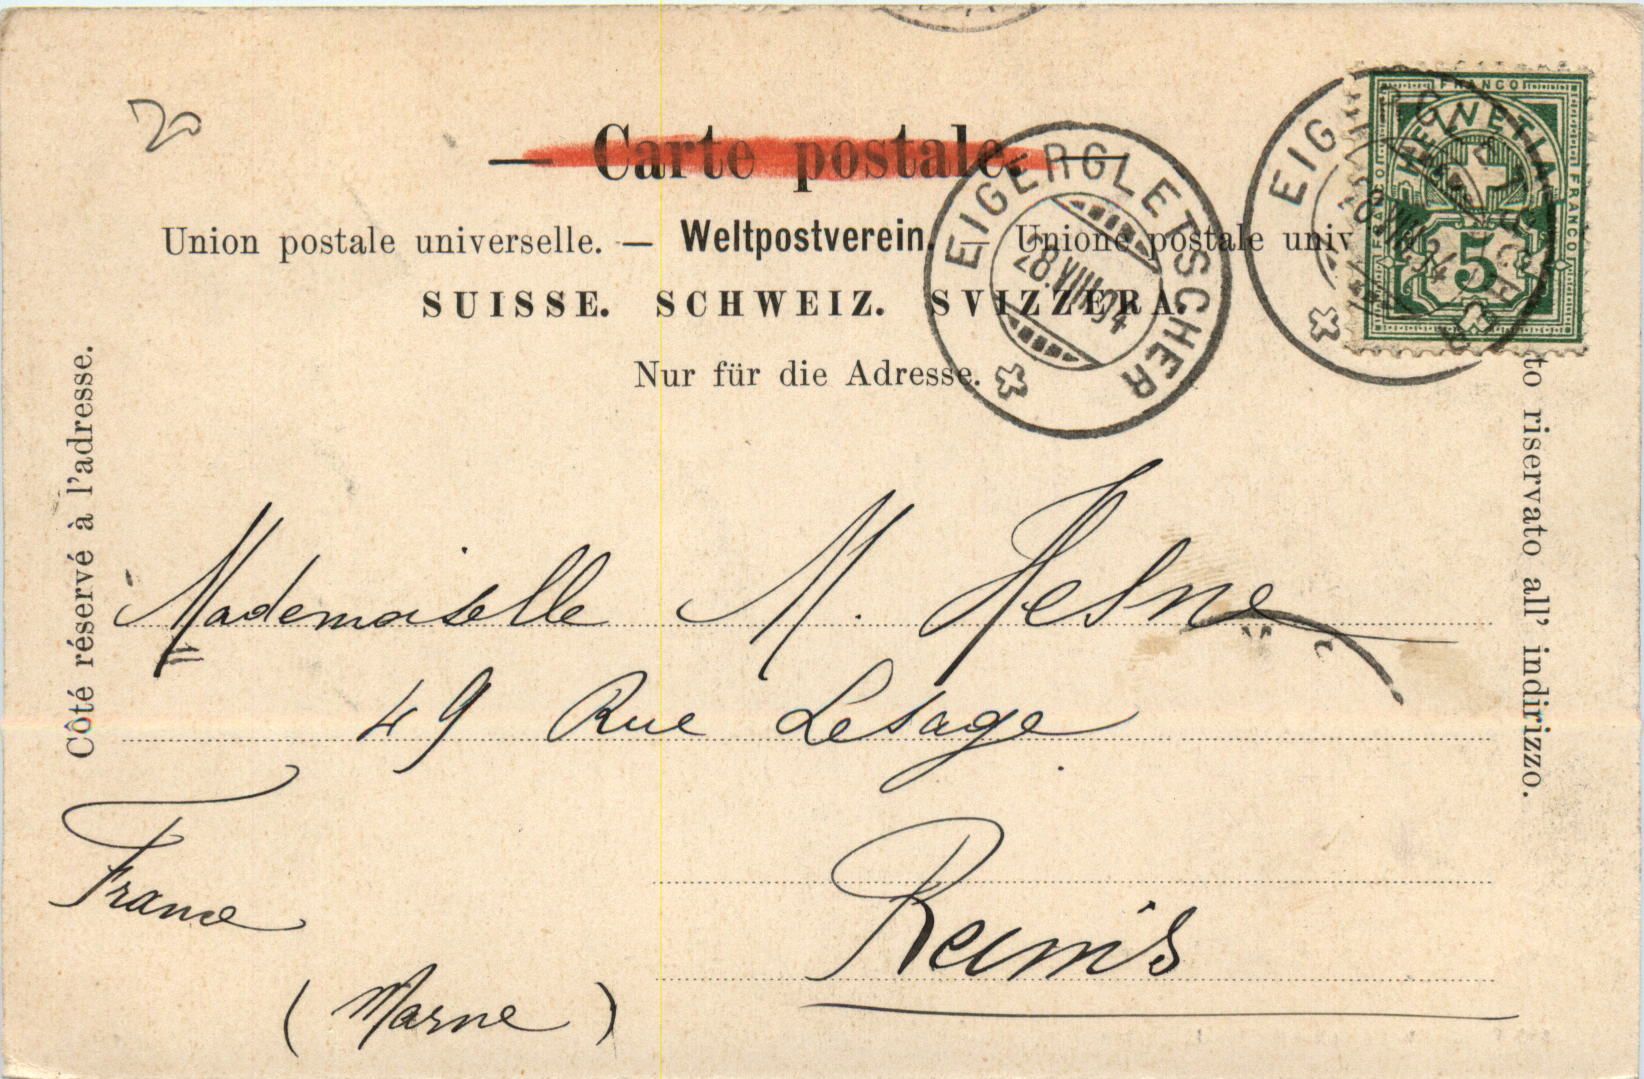 20
— Carte postale. —
Union postale universelle. — Weltpostverein. — Unione postale univ
SUISSE. SCHWEIZ. SVIZZERA.
Nur für die Adresse.
EIGERGLETSCHER
28.VIII.04
EIGERGLETSCHER
28.VIII.04
FRANCO
HELVETIA
FRANCO
FRANCO
5
Côté réservé à l'adresse.
to riservato all' indirizzo.
Mademoiselle M. Hesne
49 Rue Lesage
Reims
France
(Marne)